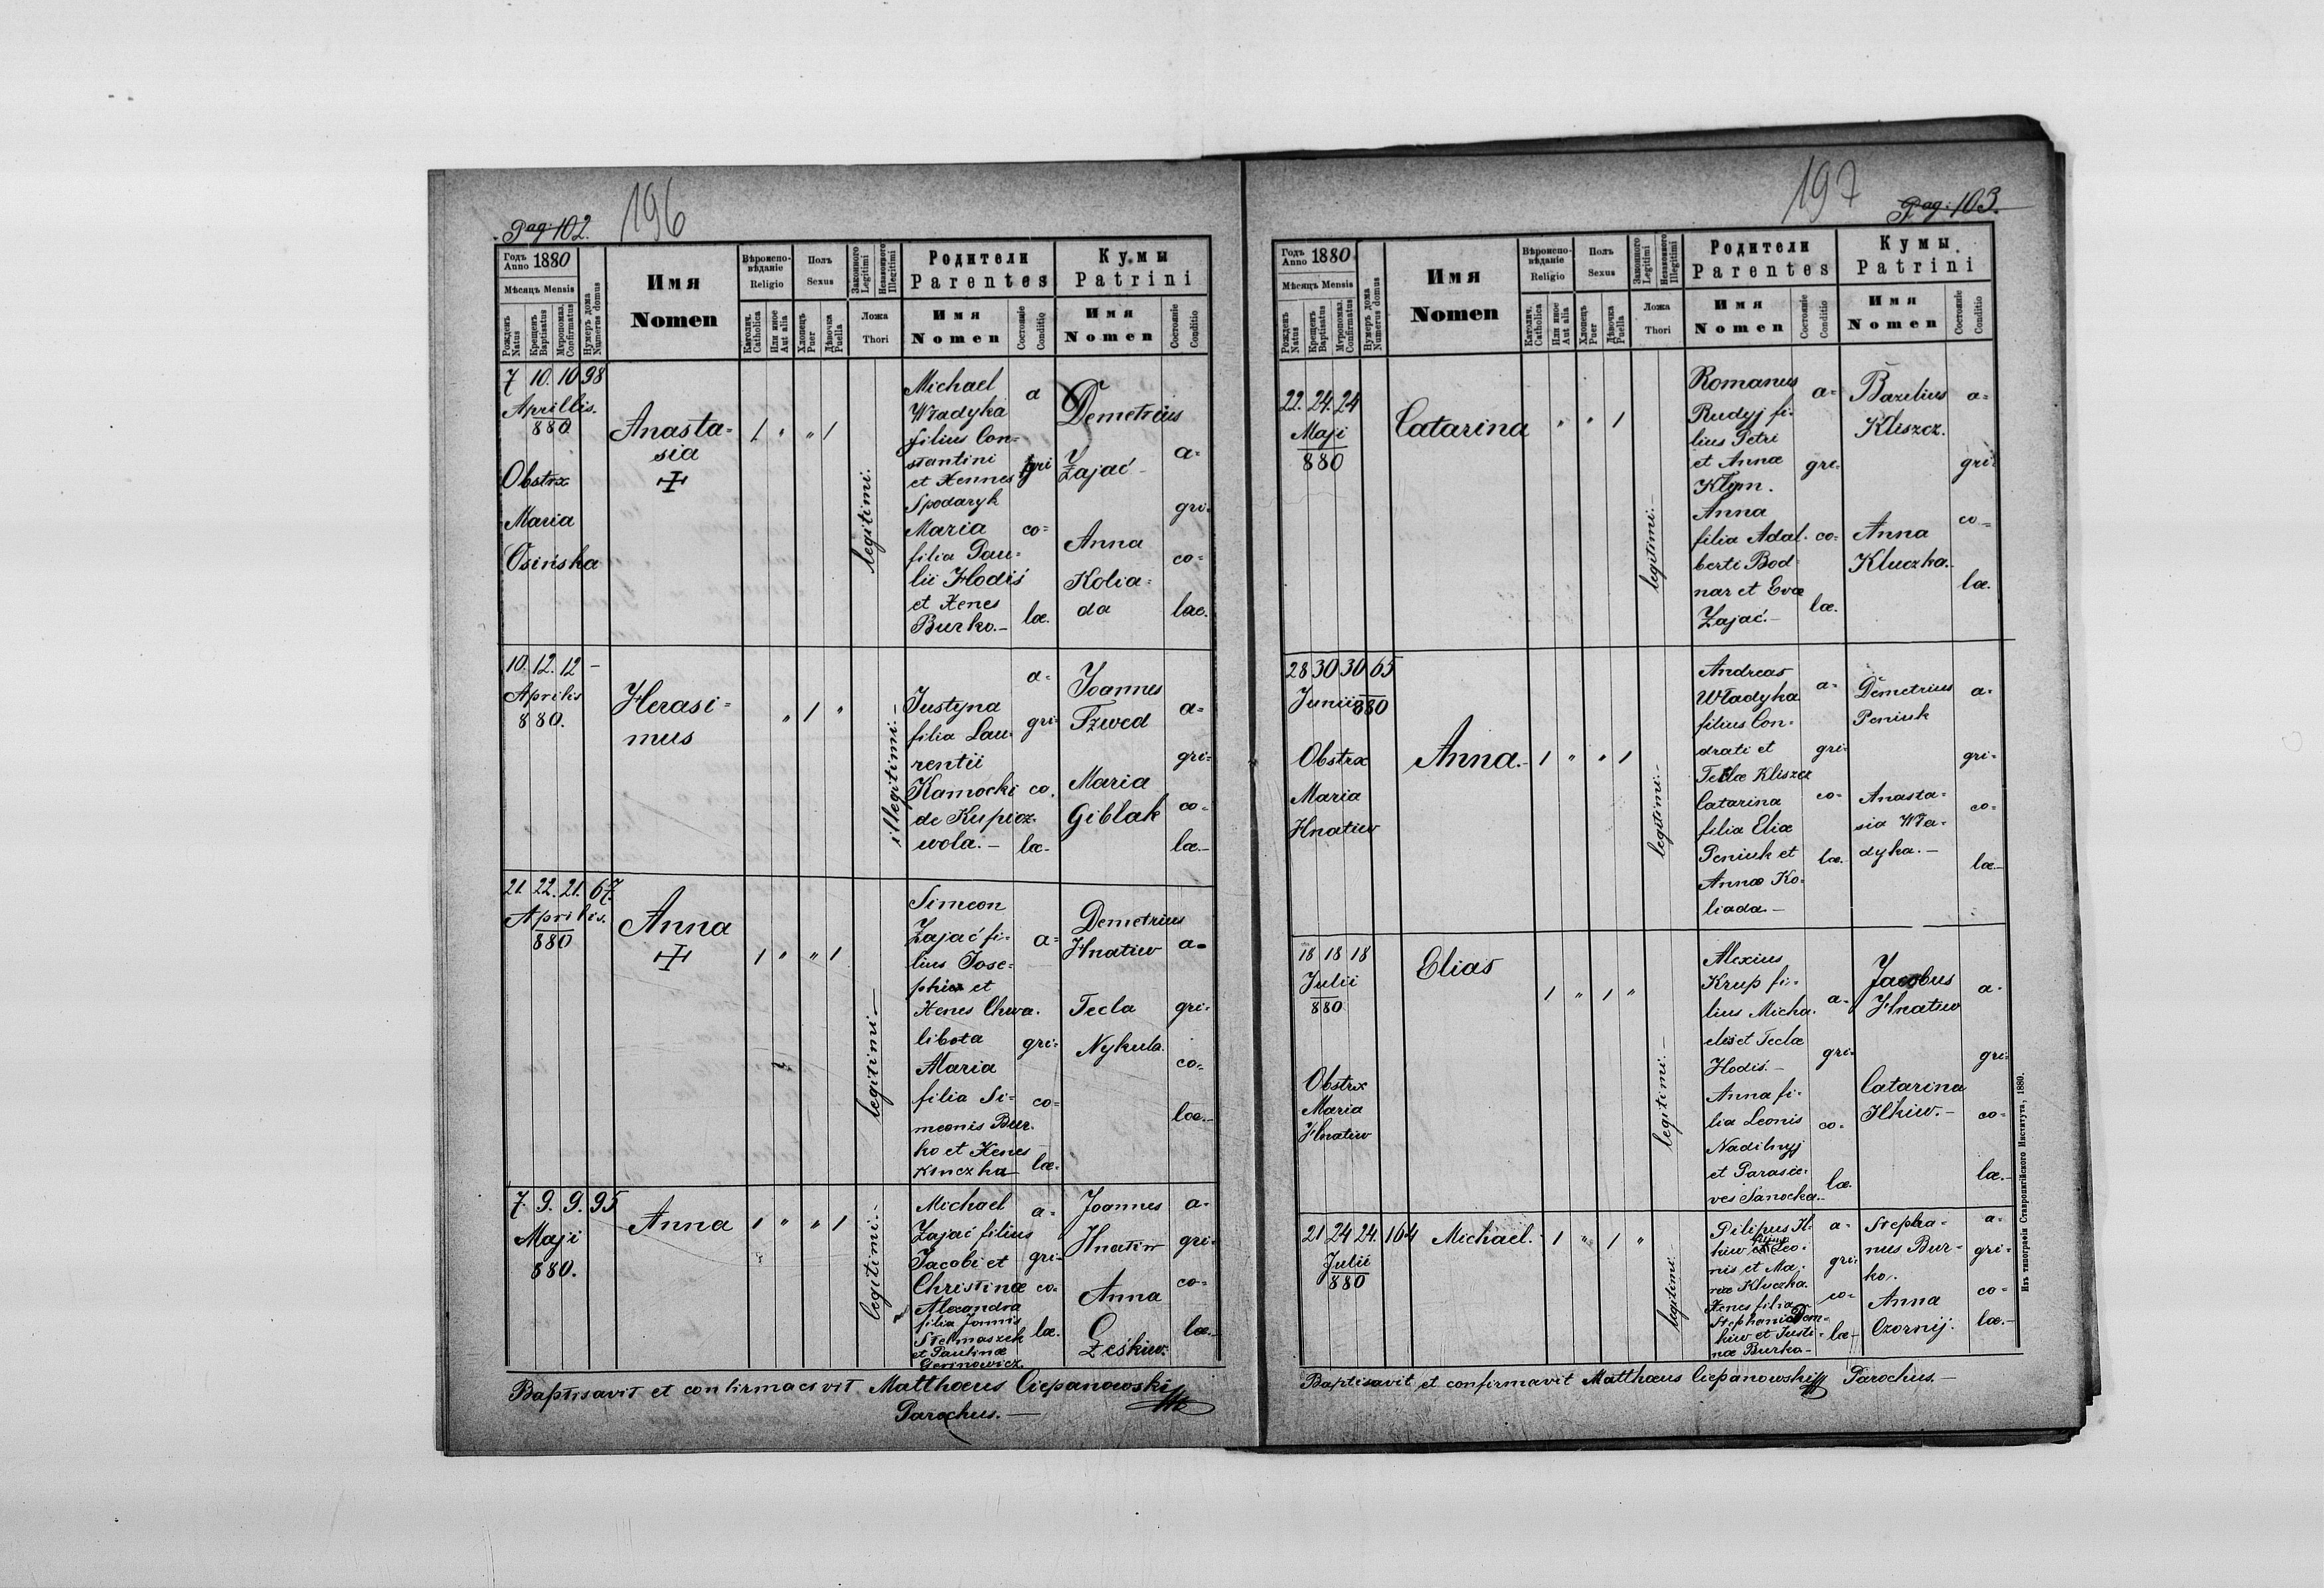 Pag. 102.
196
Годъ Anno 1880
Мѣсяцъ Mensis
Рожденъ Natus
Крещенъ Baptisatus
Мѵропомаз. Confirmatus
Нумеръ дома Numerus domus
Имя
Nomen
Вѣроиспо-вѣданіе
Religio
Католич. Catholica
Или иное Aut alia
Полъ
Sexus
Хлопецъ Puer
Дѣвочка Puella
Законного Legitimi
Незаконного Illegitimi
Ложа
Thori
Родители
Parentes
Имя
Nomen
Состояніе Conditio
Кумы
Patrini
Имя
Nomen
Состояніе Conditio
7 10. 10 98
Aprillis.
880
Obstrx
Maria
Osińska
Anasta-
sia
1 " " 1
legitimi.
Michael
Władyka
filius Con-
stantini
et Xennes
Spodaryk
Maria
filia Pau-
lii Hodiś
et Xenes
Burko.-
a
gri
co-
læ.
Demetrius
Zająć -
Anna
Kolia-
da
a-
gri-
co-
lae.
10. 12. 12 -
Aprilis
880.
Herasi-
mus
" 1 "
illegitimi.-
Justyna
filia Lau-
rentii
Kamocki
de Kupicz-
wola.-
a-
gri-
co.
læ-
Joannes
Szwed
Maria
Giblak
a-
gri-
co-
læ.-
21. 22. 21. 67.
Aprilis.
880
Anna
1 " " 1
legitimi.-
Simeon
Zajać fi-
lius Jose-
phi et
Xenes Chwa-
libota
Maria
filia Si-
meonis Bur-
ko et Xenes
Kluczka
a-
gri-
co-
læ.
Demetrius
Hnatiw
Tecla
Nykula.
a-
gri-
co-
læ.-
7. 9. 9. 95
Maji
880.
Anna
1 " " 1
legitimi.-
Michael
Zajać filius
Jacobi et
Christinæ
Alexandra
filia Joannis
Stelmaszek
et Paulinæ
a-
gri-
co-
læ.
Joannes
Hnatiw
Anna
Leśkiw.
a-
gri-
co-
læ.-
Baptisavit et confirmavit Matthæus Ciepanowski
Parochus.-
197
Pag. 103.
Годъ Anno 1880
Мѣсяцъ Mensis
Рожденъ Natus
Крещенъ Baptisatus
Мѵропомаз. Confirmatus
Нумеръ дома Numerus domus
Имя
Nomen
Вѣроиспо-вѣданіе
Religio
Католич. Catholica
Или иное Aut alia
Полъ
Sexus
Хлопецъ Puer
Дѣвочка Puella
Законного Legitimi
Незаконного Illegitimi
Ложа
Thori
Родители
Parentes
Имя
Nomen
Состояніе Conditio
Кумы
Patrini
Имя
Nomen
Состояніе Conditio
22. 24. 24
Maji
880
Catarina
" " 1
legitimi.-
Romanus
Rudyj fi-
lius Petri
et Annæ
Klym.
Anna
filia Adal-
berti Bod-
nar et Evæ
Zajać.-
a-
gri-
co-
læ.
Bazilius
Kliszcz.
Anna
Kluczka.
a-
gri-
co-
læ.
28 30 30 65
Junii 880
Obstrx
Maria
Hnatiw
Anna.-
1 " " 1
legitimi.-
Andreas
Władyka
filius Con-
drati et
Teclæ Kliszcz
Catarina
filia Eliæ
Peniuk et
Annæ Ko-
liada.-
a-
gri-
co-
læ.
Demetrius
Peniuk
Anasta-
sia Wła-
dyka.-
a-
gri-
co-
læ-
18 18 18
Julii
880
Obstrx
Maria
Hnatiw
Elias
1 " 1 "
legitimi.-
Alexius
Krup fi-
lius Micha-
elis et Teclæ
Hodiś.-
Anna fi-
lia Leonis
Nadilnyj
et Parasce-
ves Sanocka.-
a-
gri-
co-
læ.
Jacobus
Hnatiw
Catarina
Ilkiw.-
a-
gri-
co-
læ.-
21 24 24. 164
Julii
880
Michael.
1 " 1 "
legitimi.-
Pilipus Il-
kiw filius Leo-
nis et Ma-
riæ Kluczka.
Xenes filia
Stephani Dem-
kiw et Justi-
næ Burka-
a-
gri-
co-
læ-
Stepha-
nus Bur-
ko.
Anna
Czornij.
a-
gri-
co-
læ.-
Baptisavit et confirmavit Matthæus Ciepanowski Parochus.-
Изъ типографіи Ставропигійского Института, 1880.